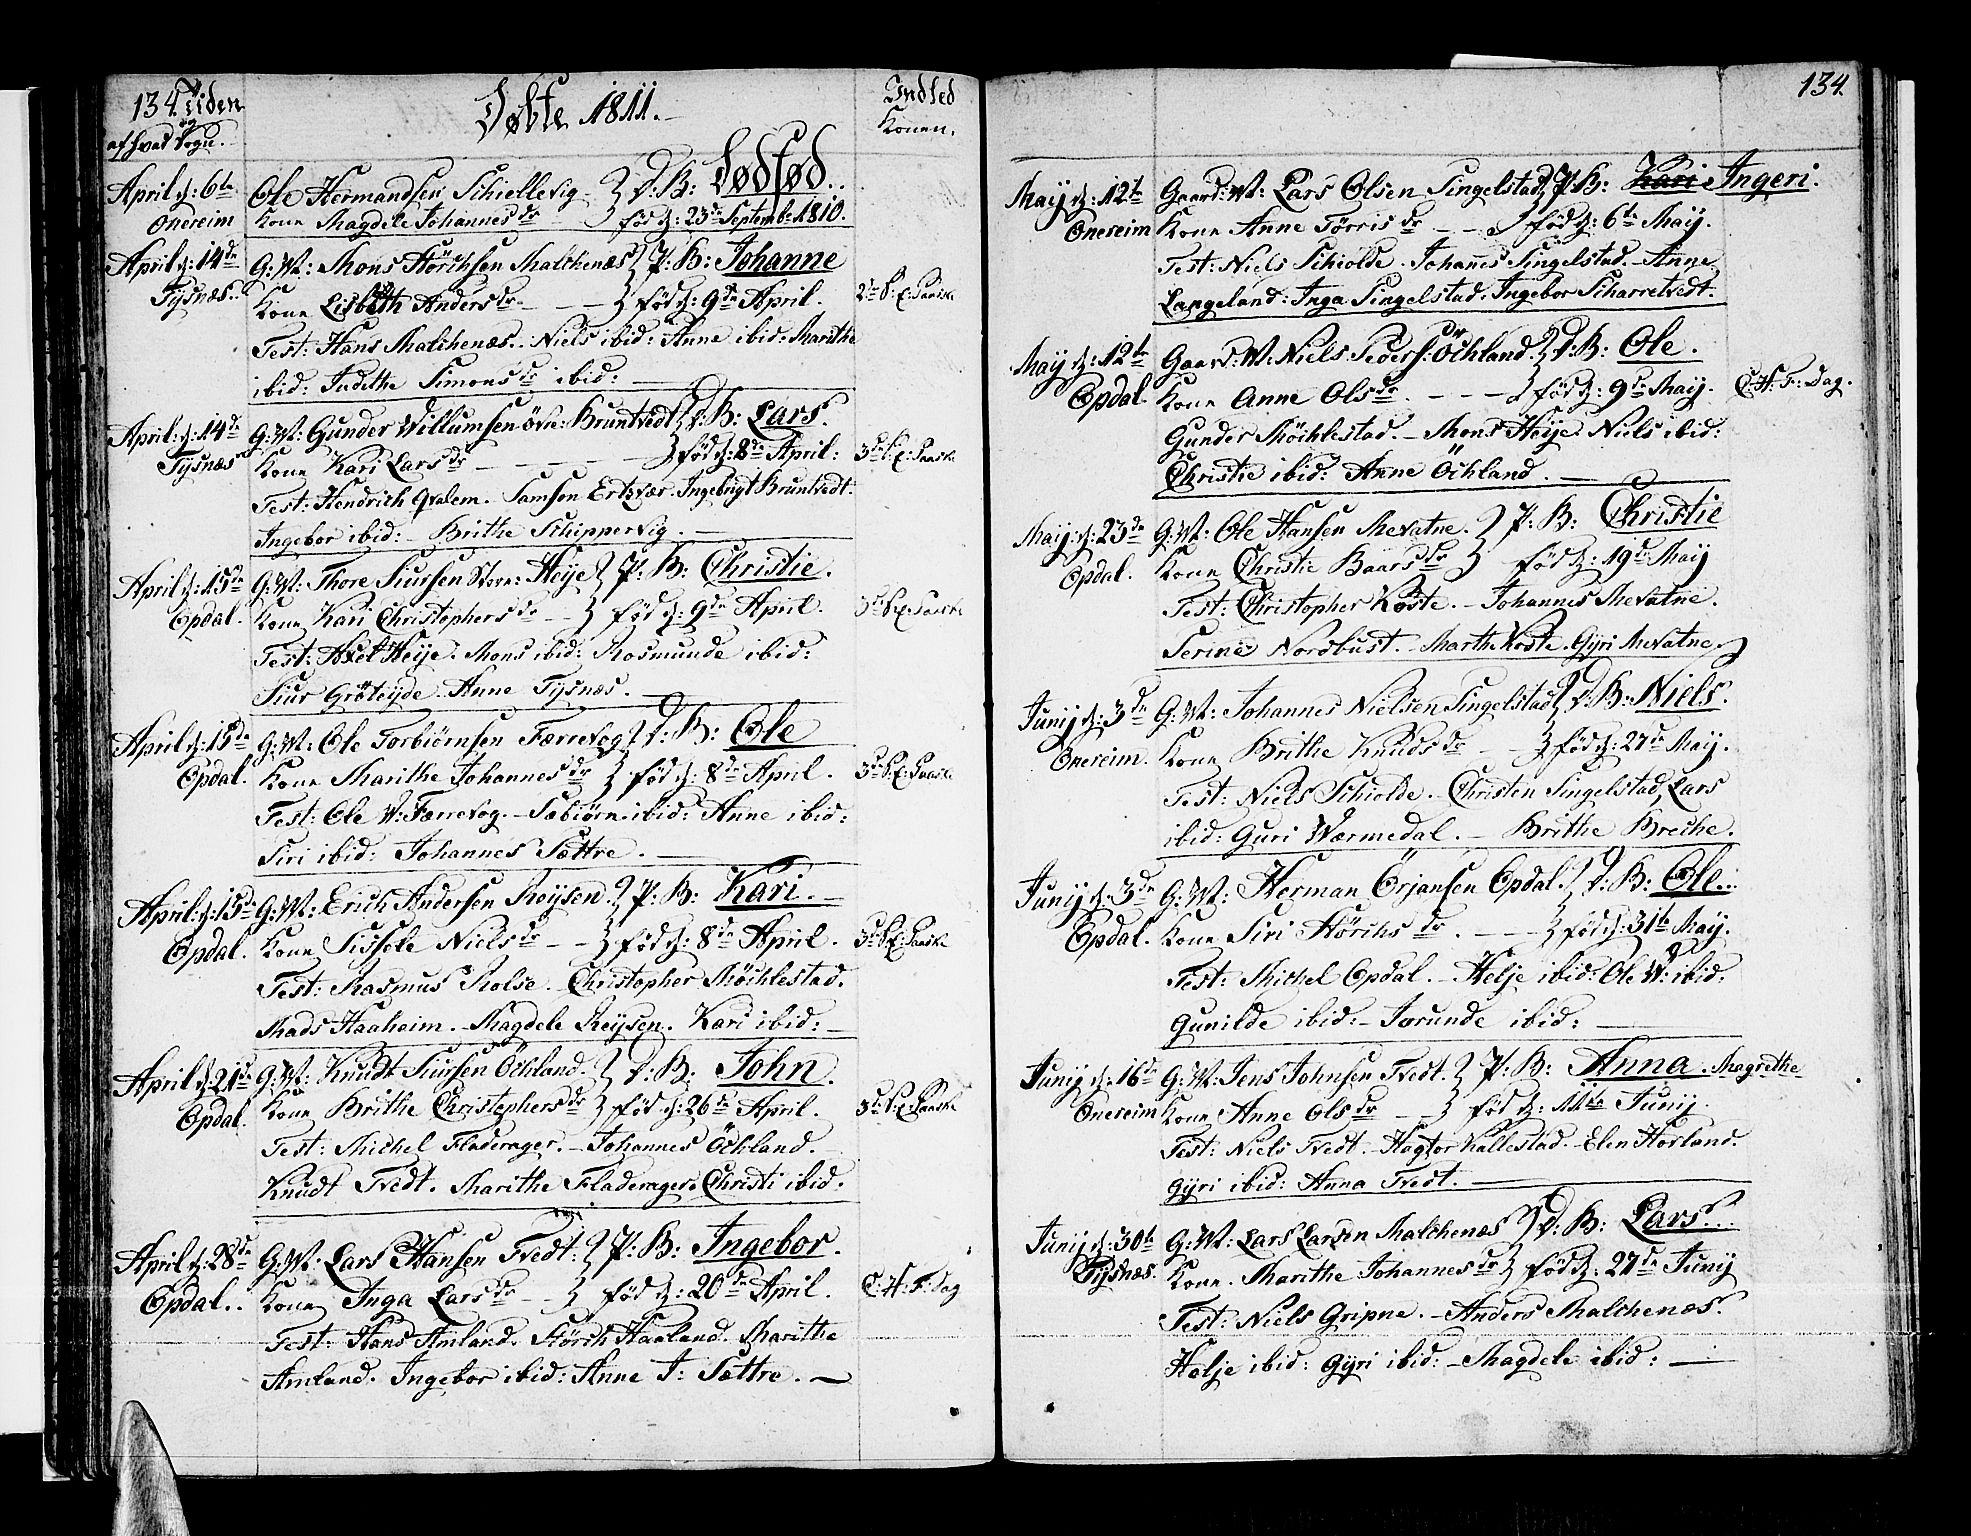 134. Tiden
og
af hvad Sogn.
Døbte 1811.
Indled
Konen.
April d: 6te
Onereim
Ole Hermandsen Schiellevig D: B: Dødfød.
Kone Magdele Johannes dr fød d: 23de Septemb: 1810.
April d: 14de
Tysnæs.
G: M: Mons Störchsen Malchenæs P: B: Johanne
Kone Lisbeth Anders dr fød d: 9de April.
2de S: E: Paaske
Test: Hans Malchenæs. Niels ibid: Anne ibid: Marithe
ibid: Judithe Simons dr ibid:
April: d: 14de
Tysnæs
G: M: Gunder Willumsen övre: Bruntvedt D: B: Lars.
Kone Kari Lars dr fød d: 8de April:
3de S: E: Paaske
Test: Hendrich Qvalem. Samsen Ertzvær. Ingebrigt Bruntvedt:
Ingebor ibid: Brithe Schippervig.
April d: 15de
Opdal.
G: M: Thore Siursen Store: Heije P: B: Christie.
Kone Kari Christophers dr fød d: 9de April.
3de S: E: Paaske
Test: Axel Heije. Mons ibid: Rosmunde ibid:
Siur Gröteyde. Anne Tysnæs.
April d: 15de
Opdal.
G: M: Ole Torbiörnsen Færrevog D: B: Ole
Kone Marithe Johannes dr fød d: 8de April.
3de S: E: Paaske
Test: Ole N: Færrevog. Sæbiörn ibid: Anne ibid:
Siri ibid: Johannes Sættre.
April: d: 15de
Opdal.
G: M: Erich Andersen Reysen. P: B: Kari.
Kone Sissele Niels dr fød d: 8de April.
3de S: E: Paaske
Test: Rasmus Rolse. Christopher Möchlestad.
Mads Haaheim. Magdele Reysen. Kari ibid:
April d: 21de
Opdal.
G: M: Knudt Siursen Öchland. D: B: John.
Kone Brithe Christophers dr fød d: 26de April.
3de S: E: Paaske
Test: Michel Fladerager. Johannes Öchland.
Knudt Tvedt. Marithe Fladerager. Christi ibid.
April d: 28de
Opdal.
G: M: Lars Hansen Tvedt: P: B: Ingebor.
Kone Inga Lars dr fød d: 20de April.
C: H: F: Dag
Test: Hans Amland. Störch Haaland. Marithe
Amland. Ingebor ibid: Anne J: Sættre.
134.
Maij d: 12te
Onereim
Gaard: M: Lars Olsen Singelstad P: B: Kari Ingeri.
Kone Anne Törris dr fød d: 6te Maij.
Test: Niels Schiolde. Johanes Singelstad. Anne
Langeland: Inga Singelstad. Ingebor Scharretvedt.
Maij d: 12te
Opdal.
Gaard: M: Niels Peders: Öchland. D: B: Ole.
Kone Anne Ols dr fød d: 9de Maij.
C: H: F: Dag.
Gunder Möchlestad. Mons Heije. Niels ibid:
Christie ibid: Anne Öchland.
Maij: d: 23de
Opdal.
G: M: Ole Hansen Mevatne. P: B: Christie
Kone Christie Baars dr fød d: 19de Maij
Test: Christopher Koste. Johannes Mevatne.
Serine Nordbust. Marthe Koste. Gyri Mevatne.
Junij d: 3de
Onereim.
G: M: Johannes Nielsen Singelstad D: B: Niels.
Kone Brithe Knuds dr fød d: 27de Maij.
Test: Niels Schiolde. Christen Singelstad, Lars
ibid: Guri Wærmedal. Brithe Breche.
Junij d: 3de
Opdal.
G: M: Herman Örjansen Opdal. D: B: Ole.
Kone Siri Störchs dr. fød d: 31te Maij.
Test: Michel Opdal. Helje ibid: Ole N: ibid:
Gunilde ibid: Jorunde ibid:
Junij d: 16de
Onereim
G: M: Jens Johnsen Tvedt. P: B: Anna. Magrethe
Kone Anne Ols dr fød d: 11te Junij.
Test: Niels Tvedt. Hagtor Kallestad. Elen Horland.
Gyri ibid: Anna Tvedt.
Junij d: 30te
Tysnæs.
G: M: Lars Larsen Malchenæs D: B: Lars.
Kone. Marithe Johannes dr fød d: 27de Junij
Test: Niels Gripne. Anders Malchenæs.
Helje ibid: Gyri ibid: Magdele ibid: